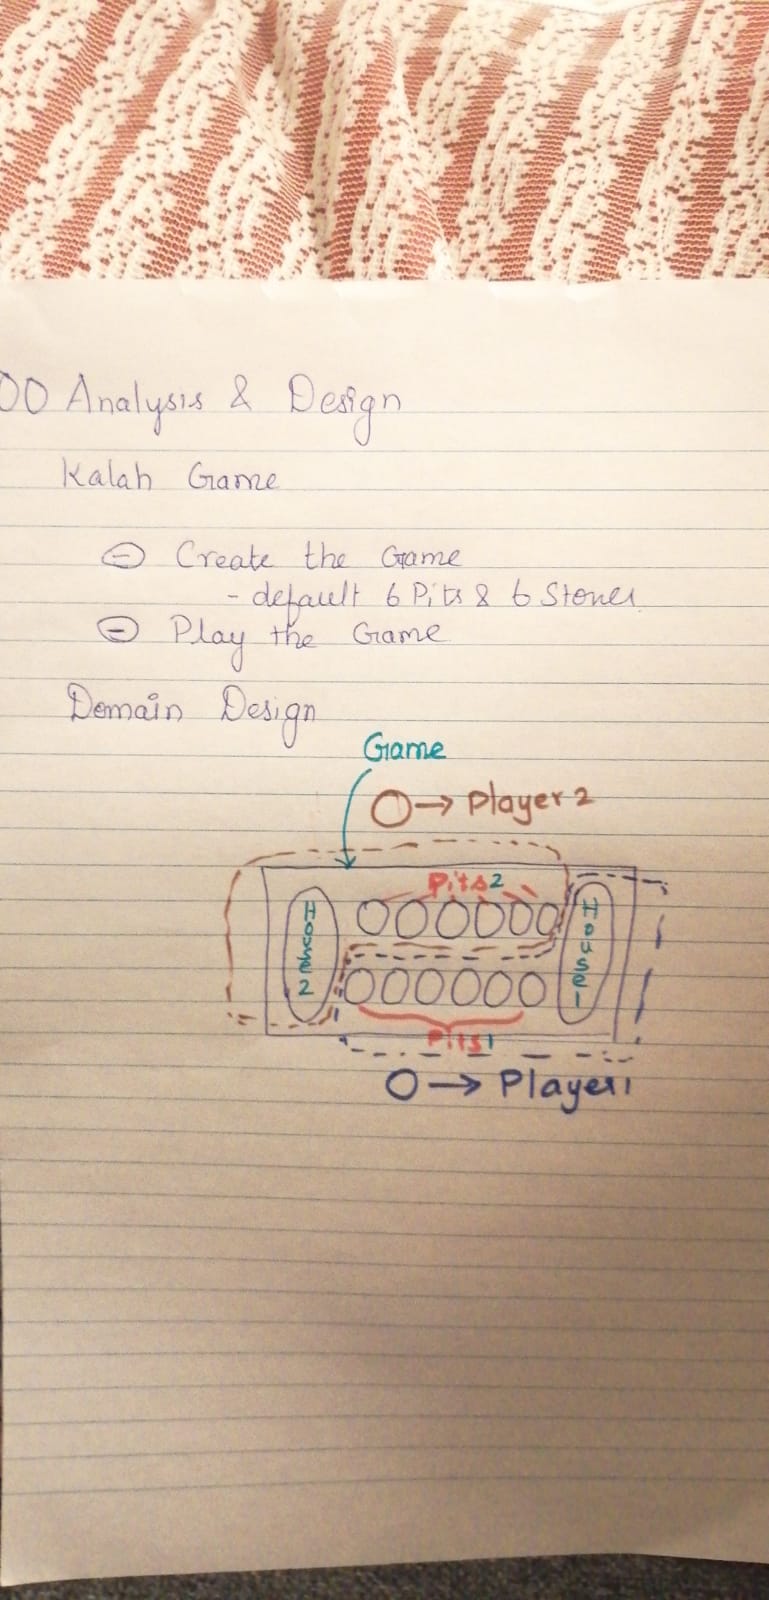 OO Analysis & Design
Kalah Game
⊖ Create the Game
- default 6 Pits & 6 Stones
⊖ Play the Game
Domain Design
Game
O → Player 2
Pits2
House2
House1
Pits1
O → Player1